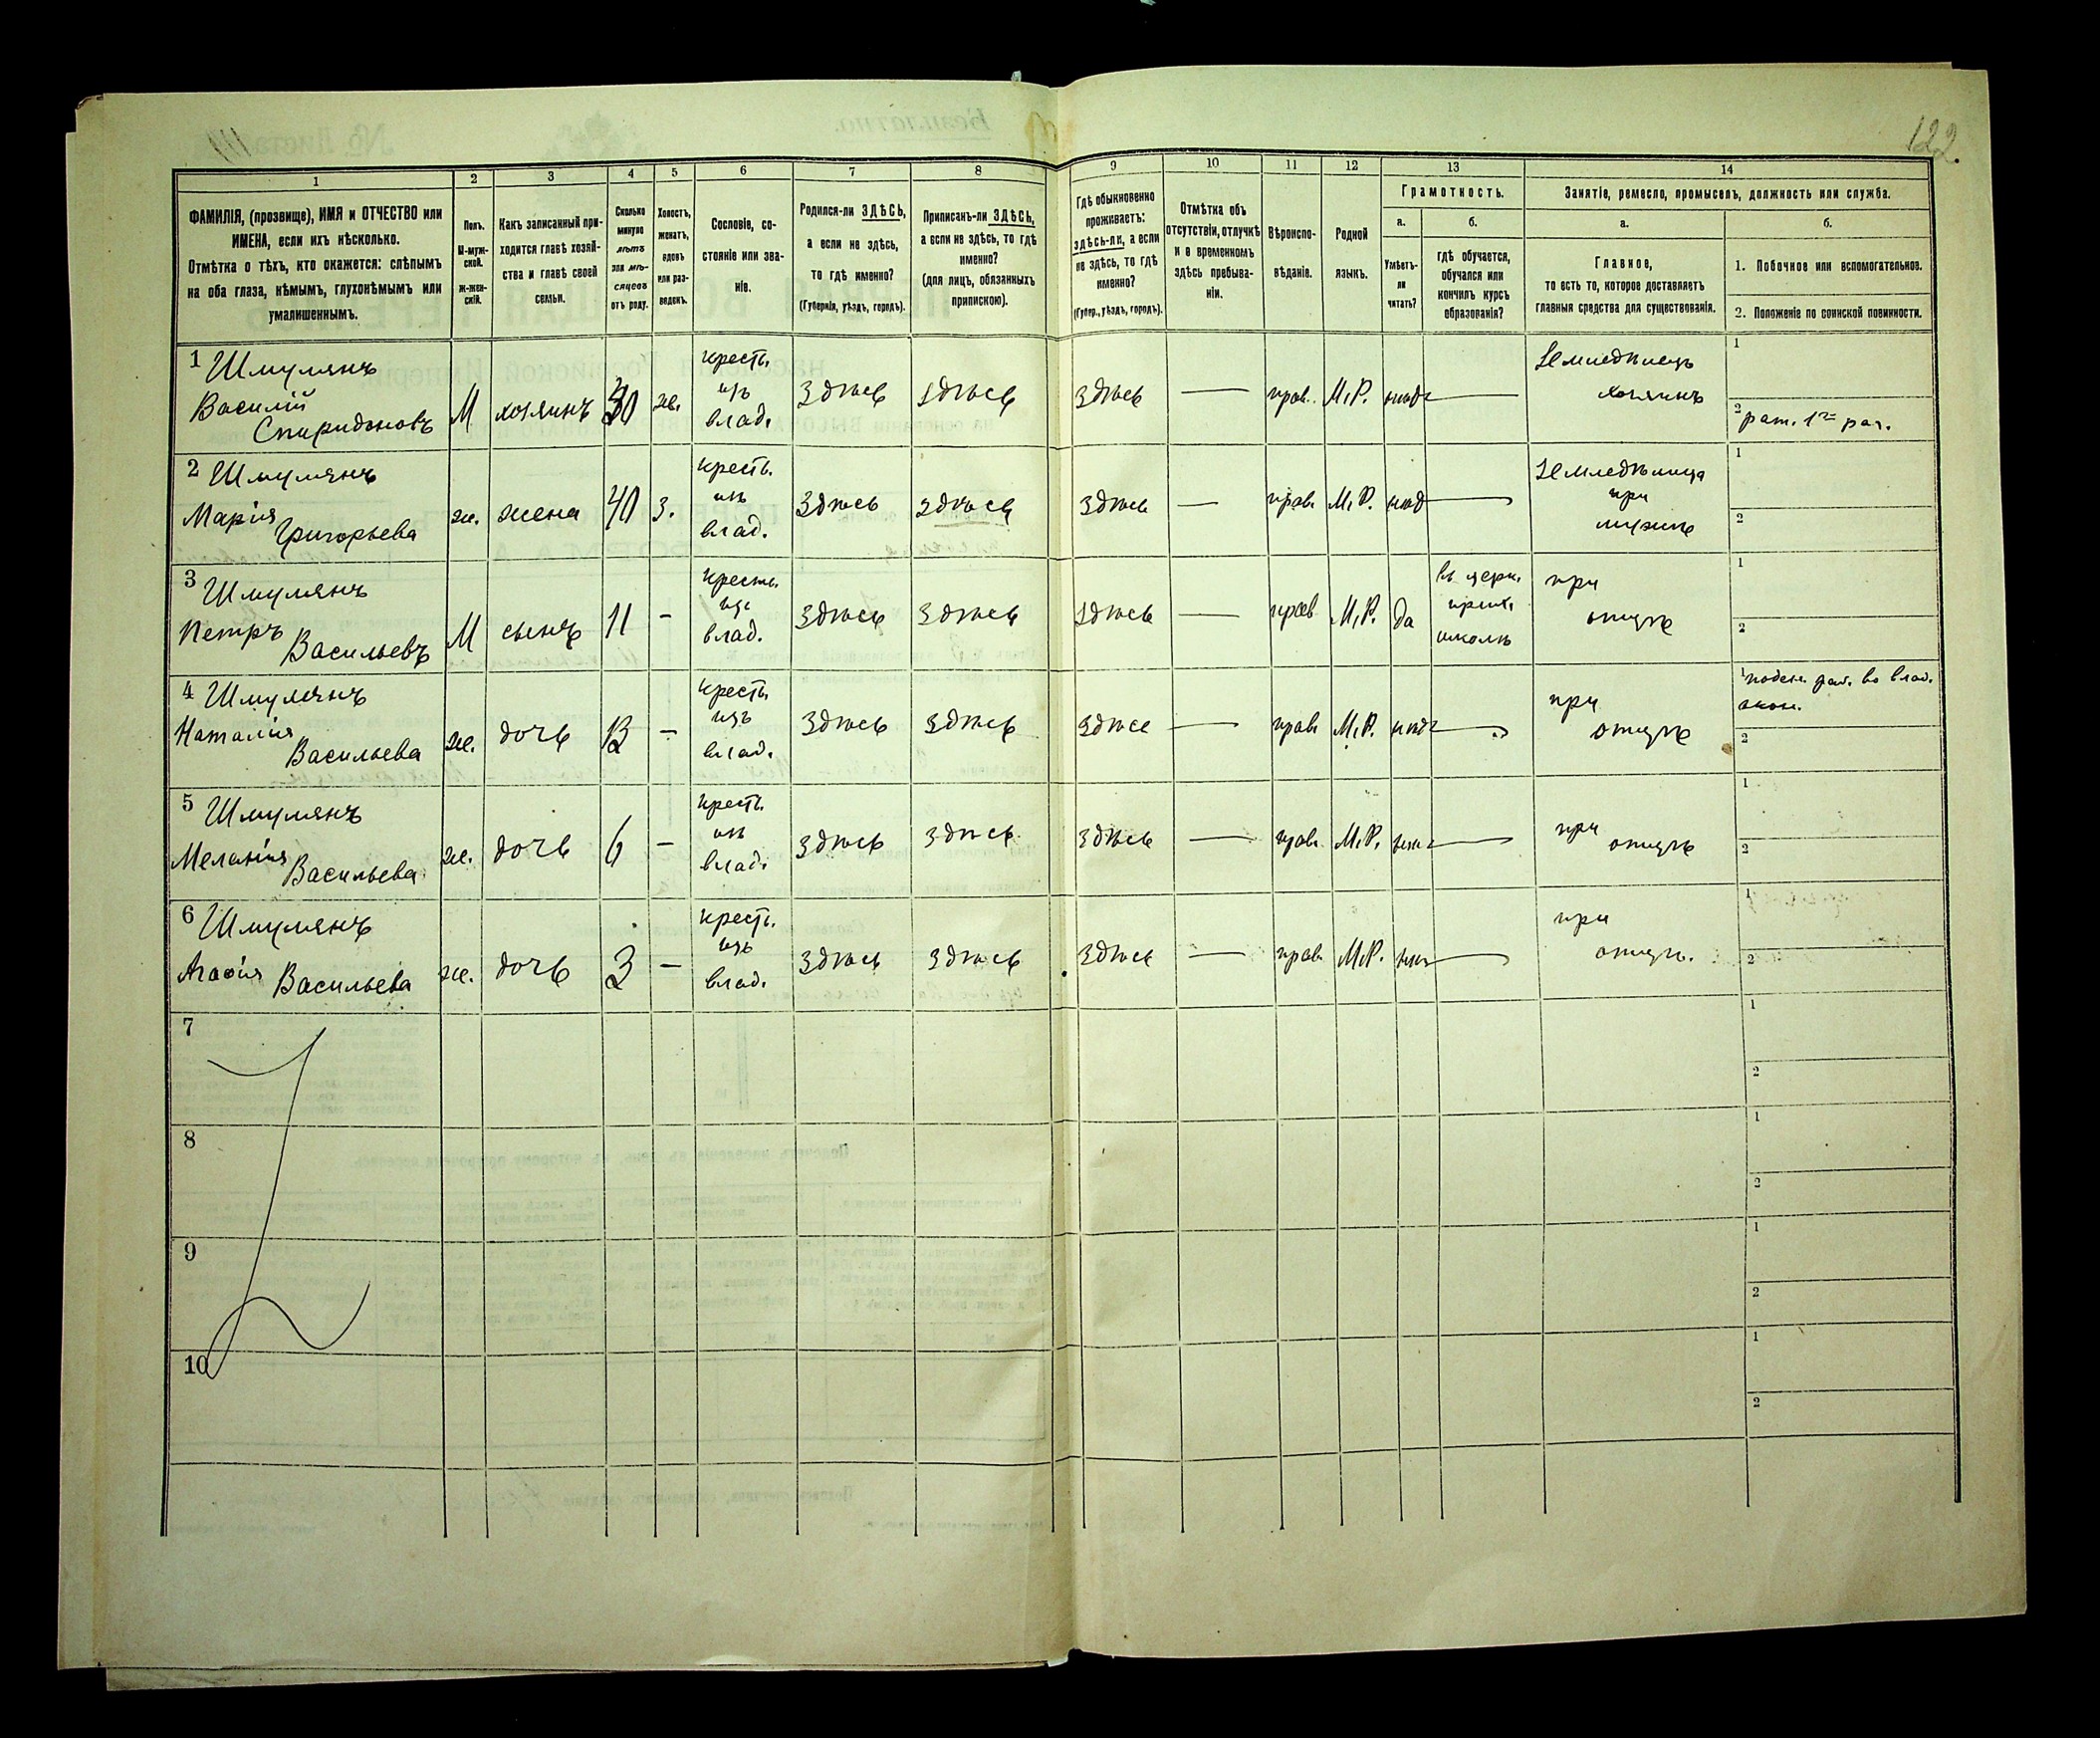 122.
1 2 3 4 5 6 7 8 9 10 11 12 13 14
ФАМИЛІЯ, (прозвище), ИМЯ и ОТЧЕСТВО или
ИМЕНА, если ихъ нѣсколько.
Отмѣтка о тѣхъ, кто окажется: слѣпымъ
на оба глаза, нѣмымъ, глухонѣмымъ или
умалишеннымъ.
Полъ.
М-муж-
ской.
Ж-жен-
скій.
Какъ записанный при-
ходится главѣ хозяй-
ства и главѣ своей
семьи.
Сколько
минуло
лѣтъ
или мѣ-
сяцевъ
отъ роду.
Холостъ,
женатъ,
вдовъ
или раз-
веденъ.
Сословіе, со-
стояніе или зва-
ніе.
Родился-ли ЗДѢСЬ,
а если не здѣсь,
то гдѣ именно?
(Губернія, уѣздъ, городъ).
Приписанъ-ли ЗДѢСЬ,
а если не здѣсь, то гдѣ
именно?
(для лицъ, обязанныхъ
припискою).
Гдѣ обыкновенно
проживаетъ:
здѣсь-ли, а если
не здѣсь, то гдѣ
именно?
(Губер., уѣздъ, городъ).
Отмѣтка объ
отсутствіи, отлучкѣ
и о временномъ
здѣсь пребыва-
ніи.
Вѣроиспо-
вѣданіе.
Родной
языкъ.
Грамотность.
а.
Умѣетъ-
ли
читать?
б.
гдѣ обучается,
обучался или
кончилъ курсъ
образованія?
Занятіе, ремесло, промыселъ, должность или служба.
а.
Главное,
то есть то, которое доставляетъ
главныя средства для существованія.
б.
1. Побочное или вспомогательное.
2. Положеніе по воинской повинности.
1 Шмулянъ
Василій
Спиридоновъ
М хозяинъ ж.
крестъ.
изъ
влад.
здѣсь здѣсь здѣсь — прав. М.Р. —
Земледѣлецъ
хозяинъ
1
2 рат. 1го раз.
2 Шмулянъ
Марія
Григорьева
ж. жена 40 з.
крестъ.
изъ
влад.
здѣсь здѣсь здѣсь — прав М.Р. —
Земледѣлица
при
мужѣ
1
2
3 Шмулянъ
Петръ
Васильевъ
М сынъ 11 -
крестъ.
изъ
влад.
здѣсь здѣсь здѣсь — прав М.Р. да
въ церк.
прих.
школѣ
при
отцѣ
1
2
4 Шмулянъ
Наталія
Васильева
ж. дочь 13 -
крестъ.
изъ
влад.
здѣсь здѣсь здѣсь — прав М.Р. —
при
отцѣ
1 поден. раб. во влад.
экон.
2
5 Шмулянъ
Меланія
Васильева
ж. дочь 6 -
крестъ.
изъ
влад.
здѣсь здѣсь здѣсь — прав М.Р. —
при
отцѣ
1
2
6 Шмулянъ
Агафія Васильева
ж. дочь 3 -
крестъ.
изъ
влад.
здѣсь здѣсь здѣсь — прав М.Р. —
при
отцѣ.
1
2
7
1
2
8
1
2
9
1
2
10
1
2